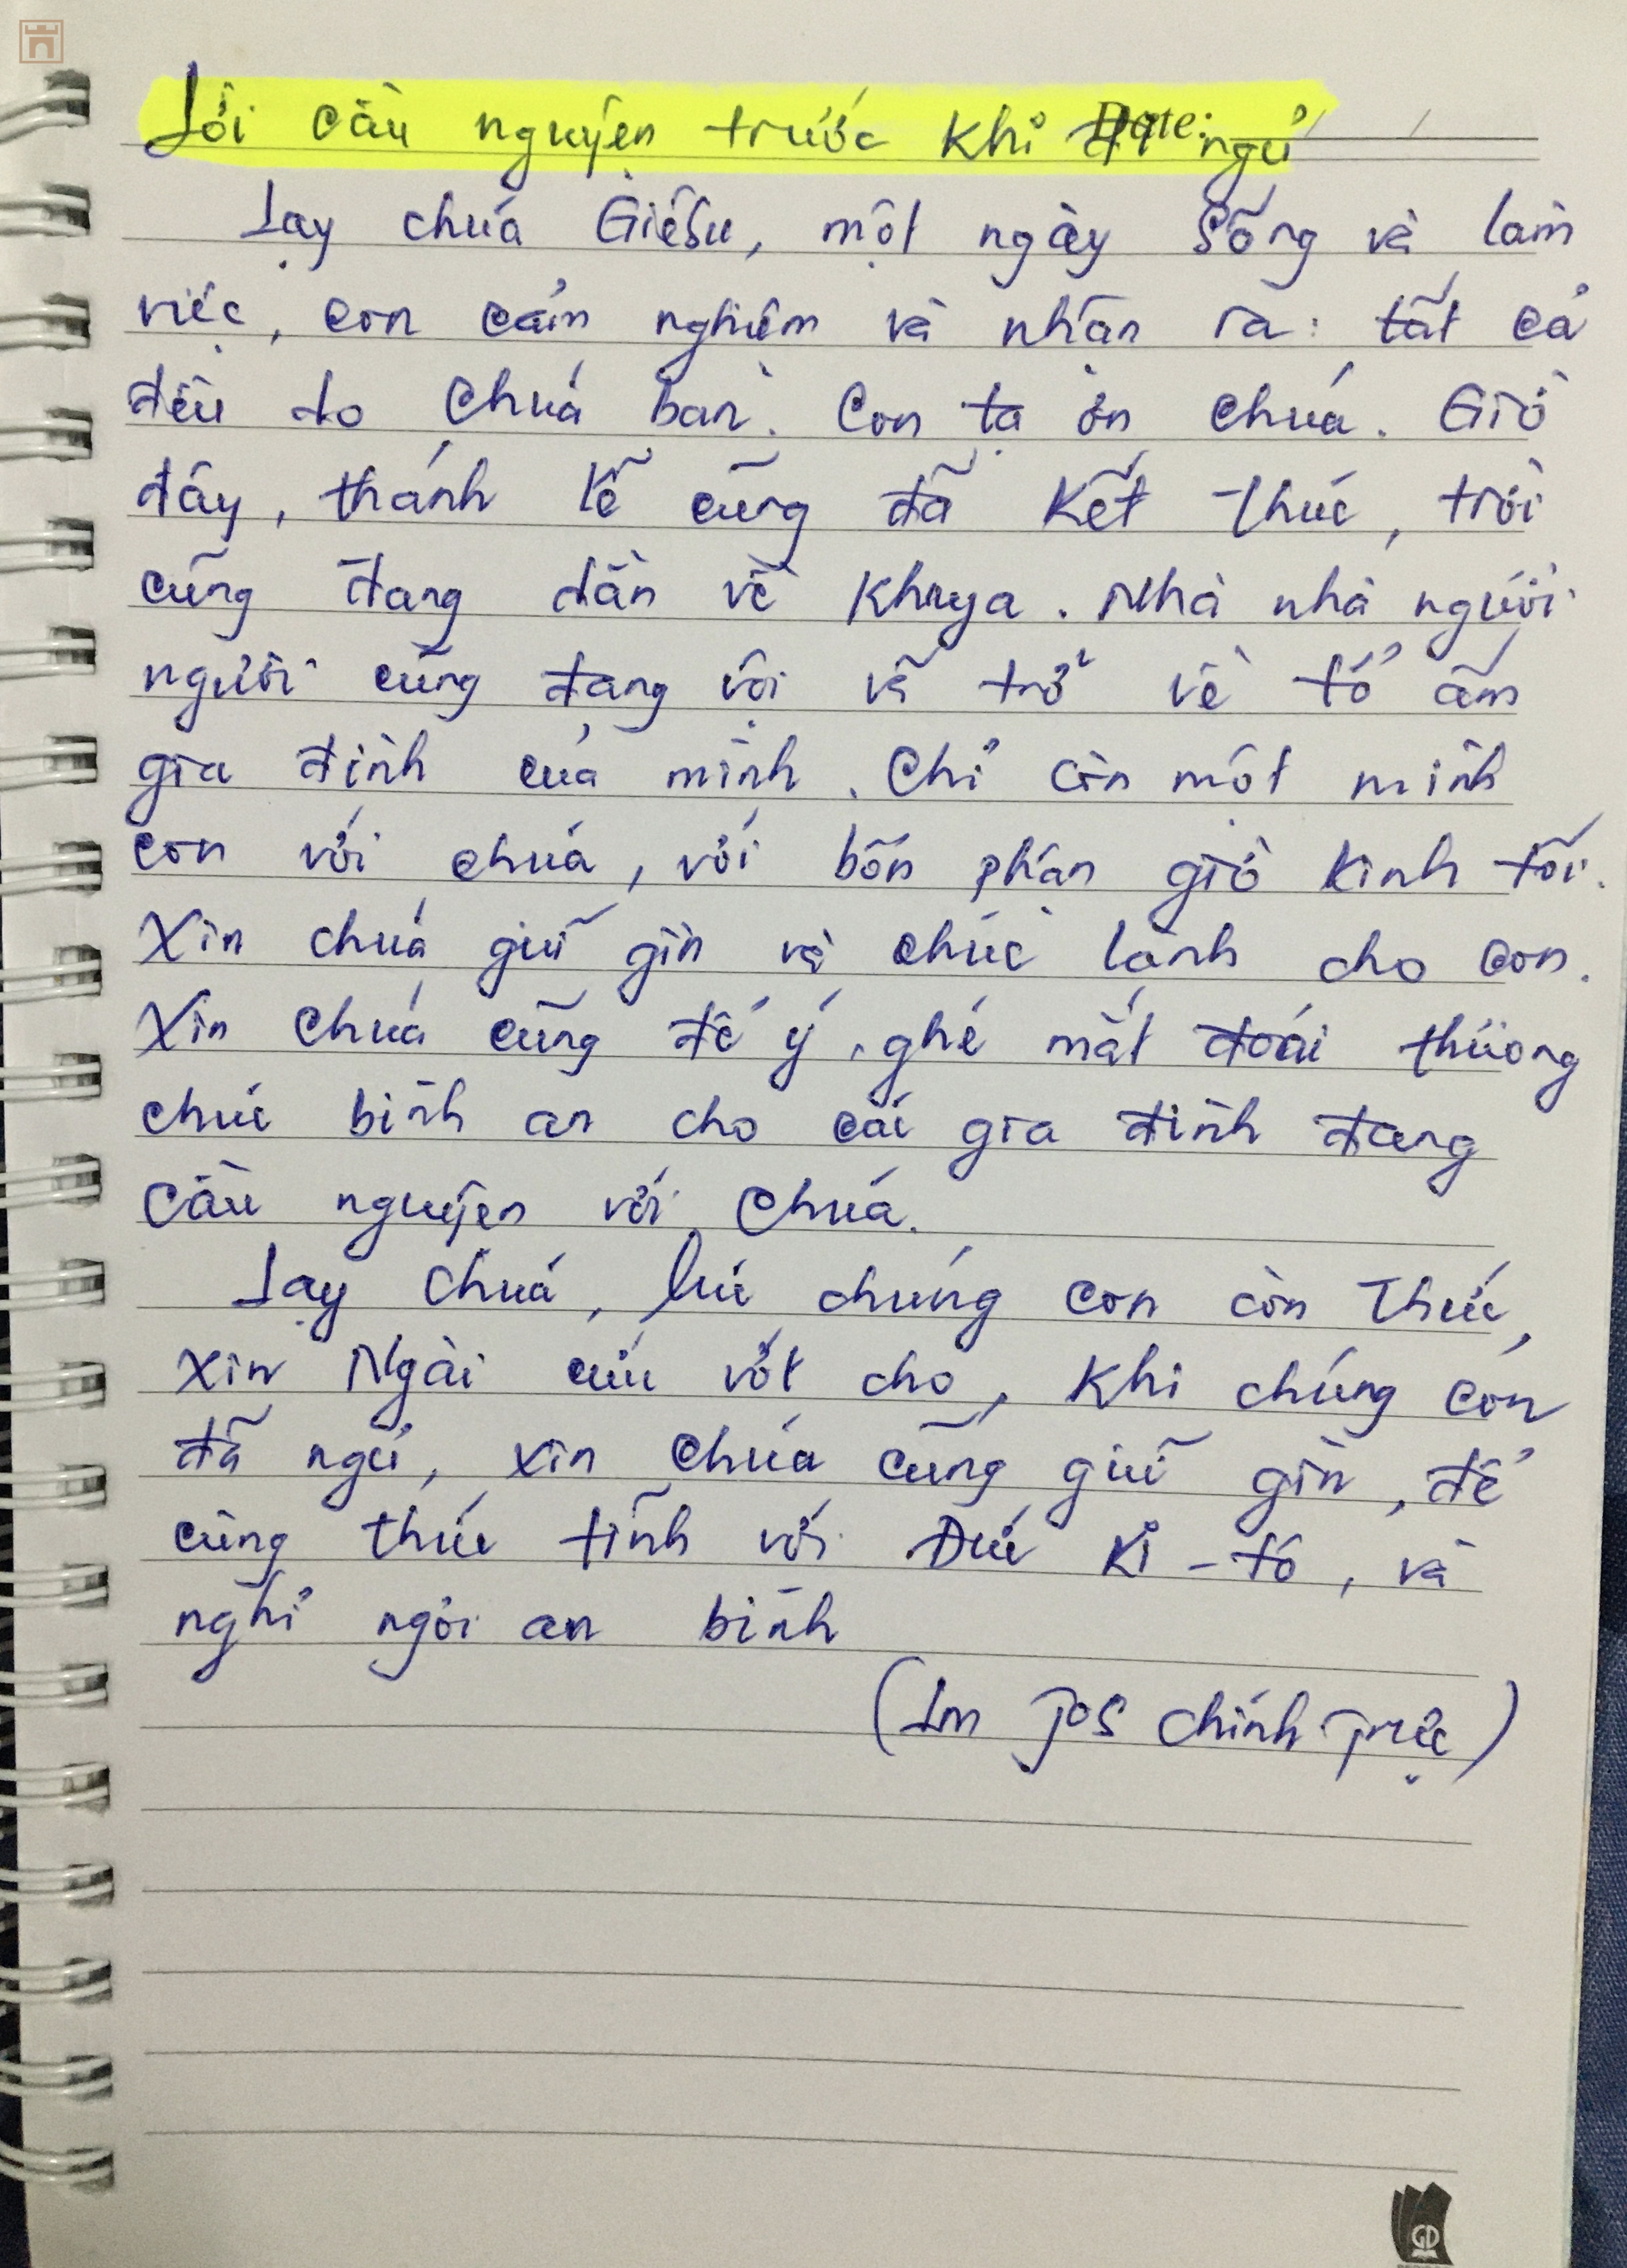 Lời cầu nguyện trước khi đi ngủ
Date:
Lạy chúa Giêsu, một ngày sống và làm
việc, con cảm nghiệm và nhận ra: tất cả
đều do Chúa ban. Con tạ ơn Chúa. Giờ
đây, thánh lễ cũng đã kết thúc, trời
cũng đang dần về khuya. Nhà nhà người
người cũng đang vội vã trở về tổ ấm
gia đình của mình. Chỉ còn một mình
con với chúa, với bổn phận giờ kinh tối.
Xin chúa giữ gìn và chúc lành cho con.
Xin Chúa cũng để ý, ghé mắt đoái thương
chúc bình an cho các gia đình đang
cầu nguyện với Chúa.
Lạy Chúa, lúc chúng con còn Thức,
xin Ngài cứu vớt cho, khi chúng con
đã ngủ, xin Chúa cũng giữ gìn, để
cùng thức tỉnh với Đức Ki-tô, và
nghỉ ngơi an bình
(Lm Jos Chính Trực)
GD